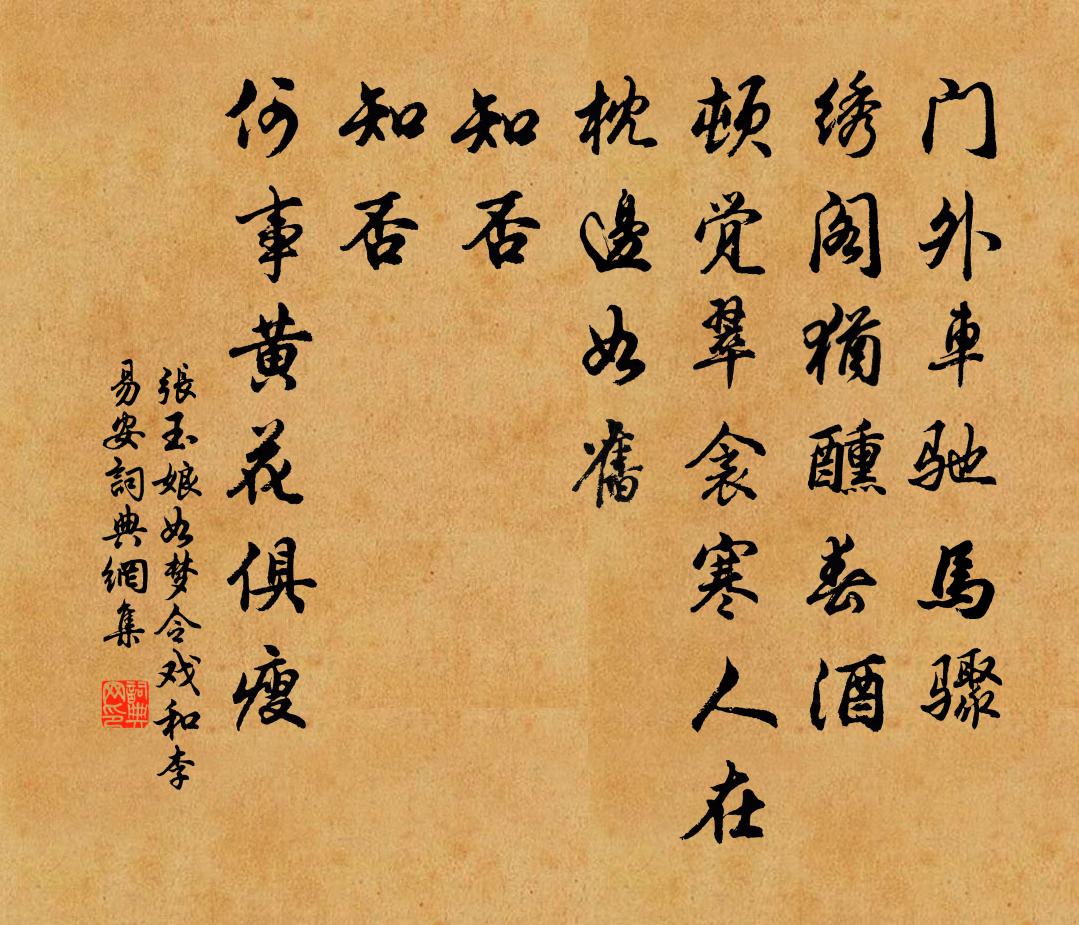 门外車驰馬驟
绣阁猶醺春酒
顿觉翠衾寒人在
枕邊如舊
知否
知否
何事黄花俱瘦
張玉娘如梦令戏和李
易安詞典網集
詞典网印